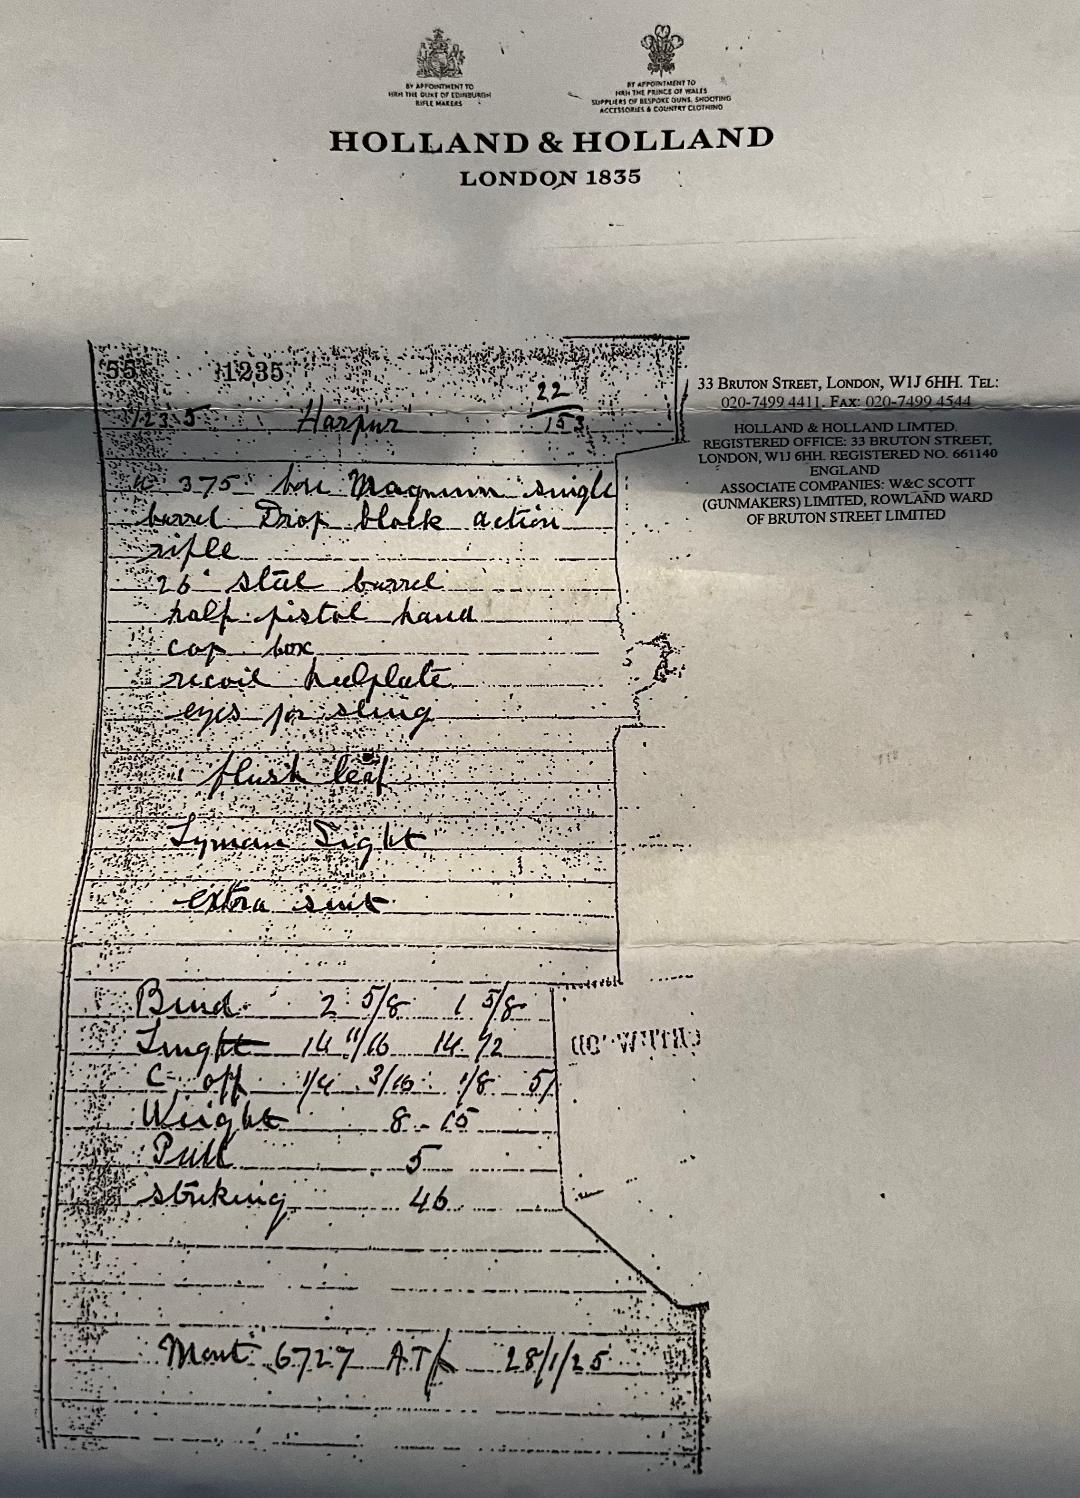 BY APPOINTMENT TO
HRH THE DUKE OF EDINBURGH
RIFLE MAKERS
BY APPOINTMENT TO
HRH THE PRINCE OF WALES
SUPPLIERS OF BESPOKE GUNS, SHOOTING
ACCESSORIES & COUNTRY CLOTHING
HOLLAND & HOLLAND
LONDON 1835
55 1235
1235 Harpur 22/153
33 BRUTON STREET, LONDON, W1J 6HH. TEL:
020-7499 4411. FAX: 020-7499 4544
HOLLAND & HOLLAND LIMTED.
REGISTERED OFFICE: 33 BRUTON STREET,
LONDON, W1J 6HH. REGISTERED NO. 661140
ENGLAND
ASSOCIATE COMPANIES: W&C SCOTT
(GUNMAKERS) LIMITED, ROWLAND WARD
OF BRUTON STREET LIMITED
a 375 bore Magnum single
barrel Drop block action
rifle
26" steel barrel
half pistol hand
cap box
recoil heelplate
eyes for sling
1 flush leaf
Lyman Sight
extra
Bend 2 5/8 1 5/8
Lenght 14 11/16 14 1/2
C. off 1/4 3/16 1/8 5/
Weight 8-15
Pull 5
striking 46
6727 28/1/25